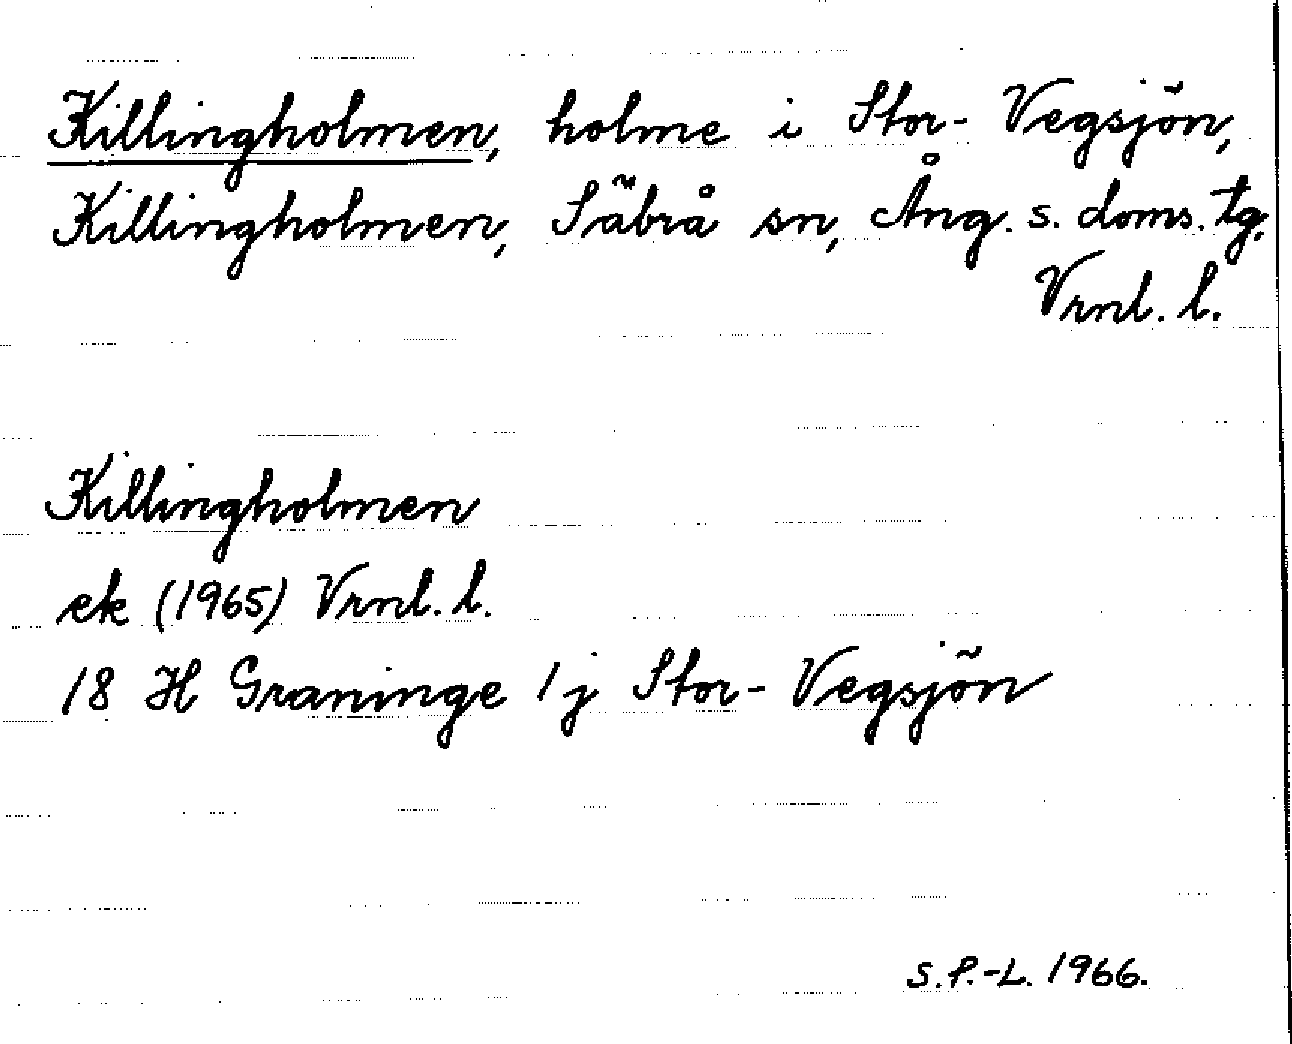 Killingholmen, holme i Stor-Vegsjön,
Killingholmen, Säbrå sn, Ång. s. doms. tg,
Vrnl. l.
Killingholmen
ek (1965) Vrnl. l.
18 H Graninge 1j Stor-Vegsjön
S.P.-L. 1966.